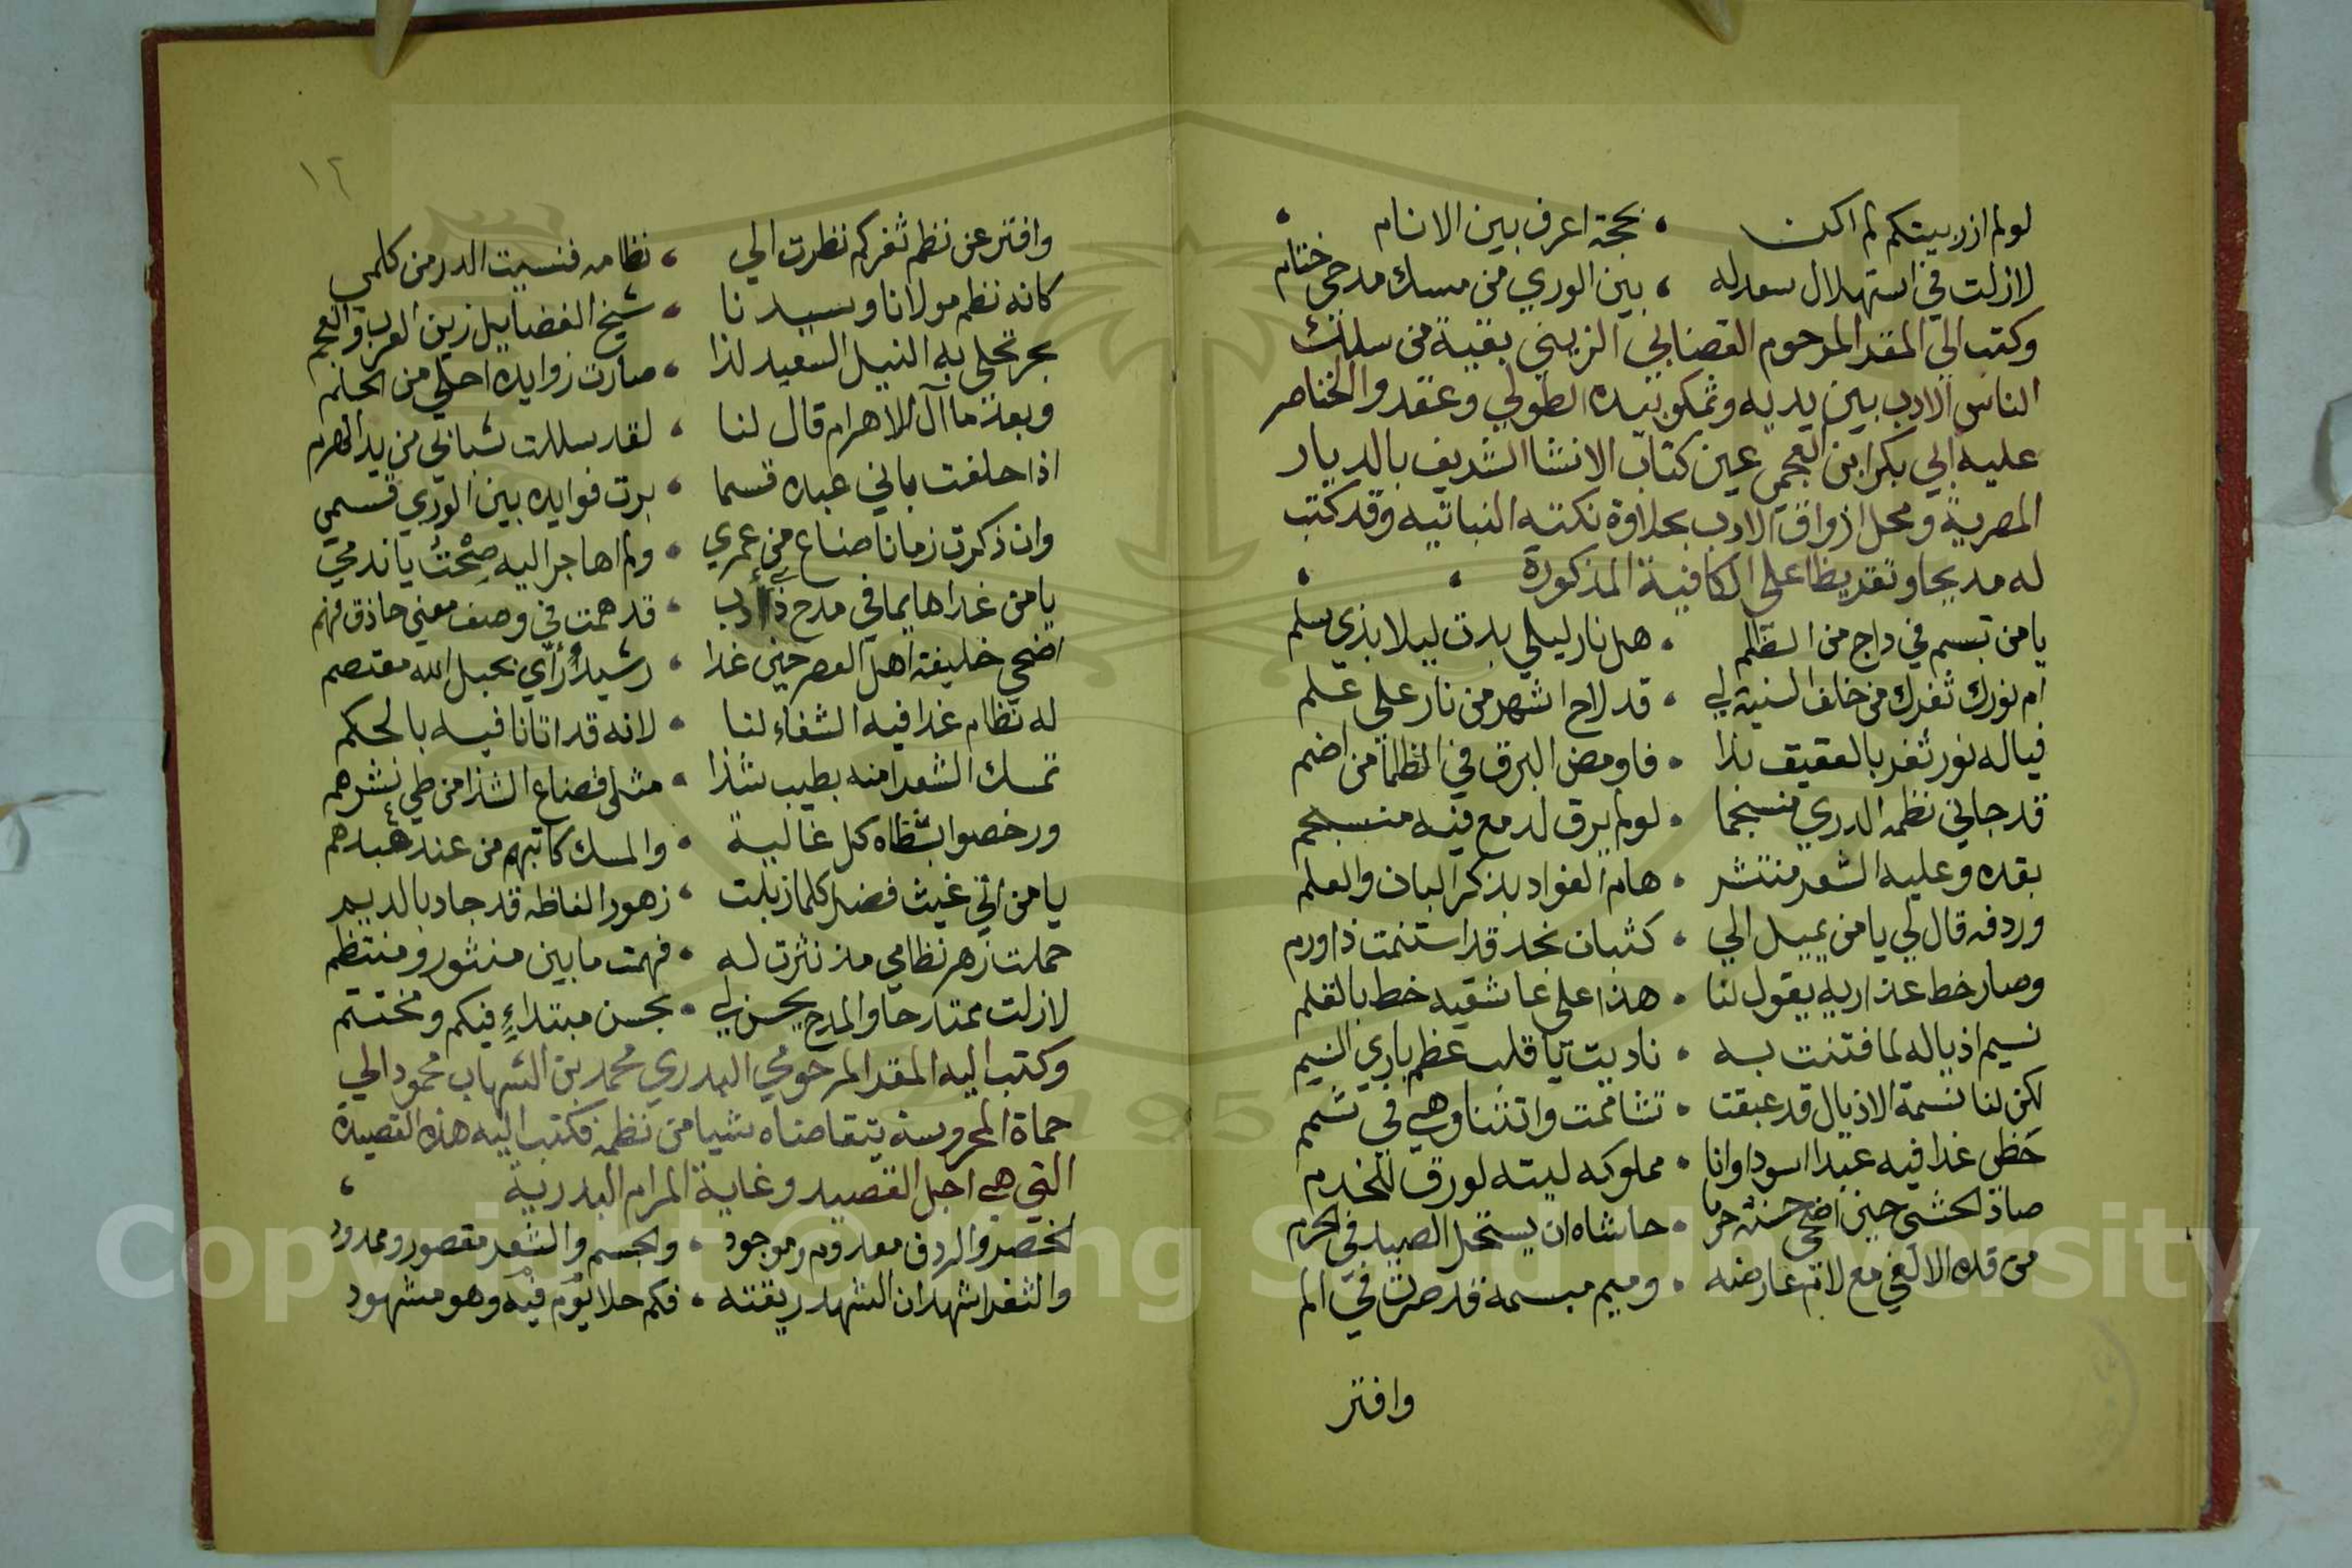 لو لم ازر بيتكم لم اكن ، بحجة اعرف بين الانام ،
لازلت في استهلال سعد له ، بين الوري من مسك مدحي ختام
وكتب الي المقر المرحوم القضايي الزيني بقية من سلك
الناس الادب بين يديه وتمكن بيده الطولي وعقدوا الخناصر
عليه ابي بكر ابن العجمي عين كتاب الانشا الشريف بالديار
المصرية ومحل اذواق الادب بحلاوة نكته النباتيه وقد كتب
له مديحا وتقريظا علي الكافية المذكورة ، ،
يا من تبسم في داج من الظلم ، هل نار ليلي بدت ليلا بذي سلم
ام نورك ثغرك من خلف الثنية لي ، قد لاح اشهر من نار علي علم
فياله نور ثغر بالعقيق بدا ، فاومض البرق في الظلما من اضم
قد جاني نظمه الدري منسجما ، لو لم يرق لدمع فيه منسجم
بقده وعليه الشعر منتشر ، هام الفواد بذكر البان والعلم
وردفه قال لي يا من يميل الي ، كثبان نجد قد استنمت ذا ورم
وصار خط عذاريه يقول لنا ، هذا علي عاشقيه خط بالقلم
نسيم اذياله لما فتنت به ، ناديت يا قلب عظم باري النسم
لكن لنا نسمة الاذيال قد عبقت ، تشاممت وانتنا وهي في شمم
حظي غدا فيه عبدا اسودا وانا ، مملوكه ليته لو رق للخدم
صاد الحشي حين اضحي حسنه حرما ، حاشاه ان يستحل الصيد في الحرم
من قده الالفي مع لام عارضه ، وميم مبسمه قد صرت في الم
وافتر
١٢
وافتر عن نظم ثغر كم نظرت الي ، نظامه فنسيت الدر من كلمي
كانه نظم مولانا وسيدنا ، شيخ الفضايل زين العرب والعجم
بحر تحلي به النيل السعيد لذا ، صارت زوايده احلي من الحلم
وبعد ما آل للاهرام قال لنا ، لقد سللت شبابي من يد الهرم
اذا حلفت باني عبده قسما ، برت فوايده بين الوري قسمي
وان ذكرت زمانا ضاع من عمري ، ولم اهاجر اليه صحت يا ندمي
يا من غدا هايما في مدح ذي أدب ، قد همت في وصف معني حاذق فهم
اضحي خليفة اهل العصر حين غدا ، رشيد رأي بحبل الله معتصم
له نظام غدا فيه الشفاء لنا ، لانه قد اتانا فيه بالحكم
تمسك الشعرا منه بطيب شذا ، مثلي فضاع الشذا من طي نشرهم
ورخصوا بشظاه كل غالية ، والمسك كاتبهم من عند عبدهم
يا من اتي غيث فضل كلما زبلت ، زهور الفاظه قد جاد بالديم
حملت زهر نظامي مذ نثرت له ، فهمت ما بين منثور ومنتظم
لازلت ممتدحا والمدح يحسن لي ، بحسن مبتداءٍ فيكم ومختتم
وكتب اليه المقر المرحومي البدري محمد بن الشهاب محمود الي
حماة المحروسة يتقاضاه شيا من نظمه فكتب اليه هذه القصيدة
التي هي اجل القصيد وغاية المرام البدرية ،
الخصر والردف معدوم وموجود ، والجسم والشعر مقصور وممدود
والثغر اشهد ان الشهد ريقته ، فكم حلا يوم فيه وهو مشهود
Copyright © King Saud University
1957